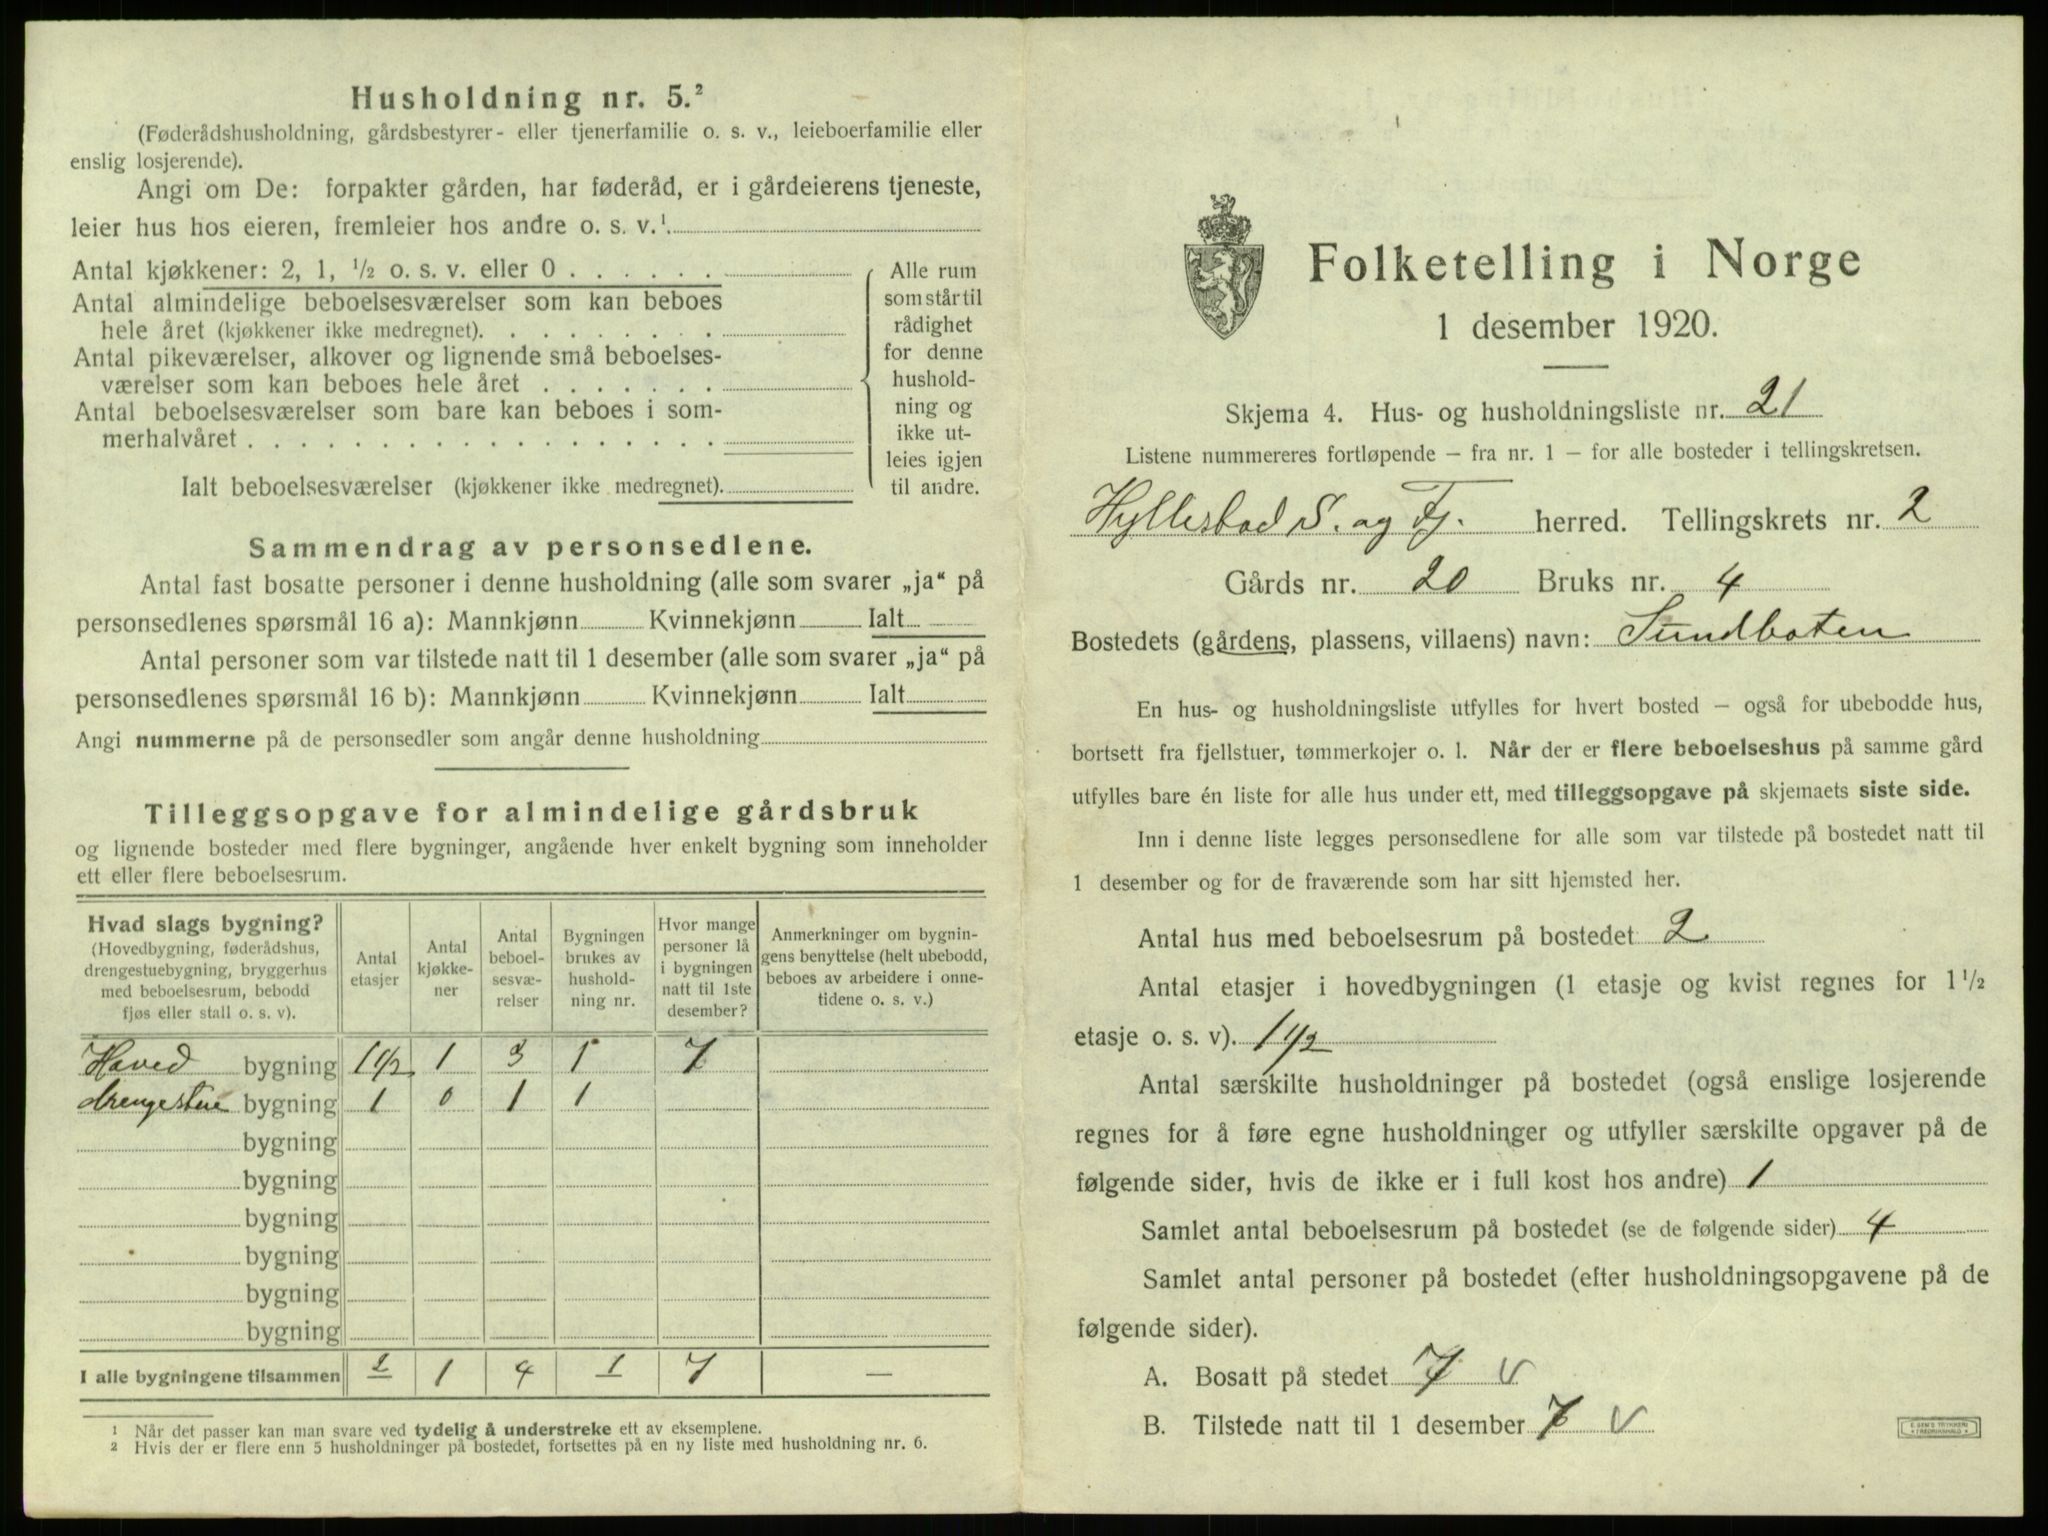 Husholdning nr. 5.²
(Føderådshusholdning, gårdsbestyrer- eller tjenerfamilie o. s. v., leieboerfamilie eller
enslig losjerende).
Angi om De: forpakter gården, har føderåd, er i gårdeierens tjeneste,
leier hus hos eieren, fremleier hos andre o. s. v.¹
Antal kjøkkener: 2, 1, ½ o. s. v. eller 0 . . . . . .
Antal almindelige beboelsesværelser som kan beboes
hele året (kjøkkener ikke medregnet). . . . . . . . .
Antal pikeværelser, alkover og lignende små beboelses-
værelser som kan beboes hele året . . . . . . .
Antal beboelsesværelser som bare kan beboes i som-
merhalvåret . . . . . . . . . . . . . . . . . .
Ialt beboelsesværelser (kjøkkener ikke medregnet).
Alle rum
som står til
rådighet
for denne
hushold-
ning og
ikke ut-
leies igjen
til andre.
Sammendrag av personsedlene.
Antal fast bosatte personer i denne husholdning (alle som svarer „ja“ på
personsedlenes spørsmål 16 a): Mannkjønn Kvinnekjønn Ialt
Antal personer som var tilstede natt til 1 desember (alle som svarer „ja“ på
personsedlenes spørsmål 16 b): Mannkjønn Kvinnekjønn Ialt
Angi nummerne på de personsedler som angår denne husholdning
Tilleggsopgave for almindelige gårdsbruk
og lignende bosteder med flere bygninger, angående hver enkelt bygning som inneholder
ett eller flere beboelsesrum.
Hvad slags bygning?
(Hovedbygning, føderådshus,
drengestuebygning, bryggerhus
med beboelsesrum, bebodd
fjøs eller stall o. s. v).
Antal
etasjer
Antal
kjøkke-
ner
Antal
beboel-
sesvæ-
relser
Bygningen
brukes av
hushold-
ning nr.
Hvor mange
personer lå
i bygningen
natt til 1ste
desember?
Anmerkninger om bygnin-
gens benyttelse (helt ubebodd,
beboes av arbeidere i onne-
tidene o. s. v.)
Hoved bygning 1 1/2 1 3 1 7
drengestue bygning 1 0 1 1
bygning
bygning
bygning
bygning
bygning
bygning
I alle bygningene tilsammen 2 1 4 1 7 —
¹ Når det passer kan man svare ved tydelig å understreke ett av eksemplene.
² Hvis der er flere enn 5 husholdninger på bostedet, fortsettes på en ny liste med husholdning nr. 6.
Folketelling i Norge
1 desember 1920.
Skjema 4. Hus- og husholdningsliste nr. 21
Listene nummereres fortløpende – fra nr. 1 – for alle bosteder i tellingskretsen.
Hyllestad S. og Fj. herred. Tellingskrets nr. 2
Gårds nr. 20 Bruks nr. 4
Bostedets (gårdens, plassens, villaens) navn: Sundboten
En hus- og husholdningsliste utfylles for hvert bosted – også for ubebodde hus,
bortsett fra fjellstuer, tømmerkojer o. l. Når der er flere beboelseshus på samme gård
utfylles bare én liste for alle hus under ett, med tilleggsopgave på skjemaets siste side.
Inn i denne liste legges personsedlene for alle som var tilstede på bostedet natt til
1 desember og for de fraværende som har sitt hjemsted her.
Antal hus med beboelsesrum på bostedet 2
Antal etasjer i hovedbygningen (1 etasje og kvist regnes for 1 1/2
etasje o. s. v). 1 1/2
Antal særskilte husholdninger på bostedet (også enslige losjerende
regnes for å føre egne husholdninger og utfyller særskilte opgaver på de
følgende sider, hvis de ikke er i full kost hos andre) 1
Samlet antal beboelsesrum på bostedet (se de følgende sider) 4
Samlet antal personer på bostedet (efter husholdningsopgavene på de
følgende sider).
A. Bosatt på stedet 7 v
B. Tilstede natt til 1 desember 7 v